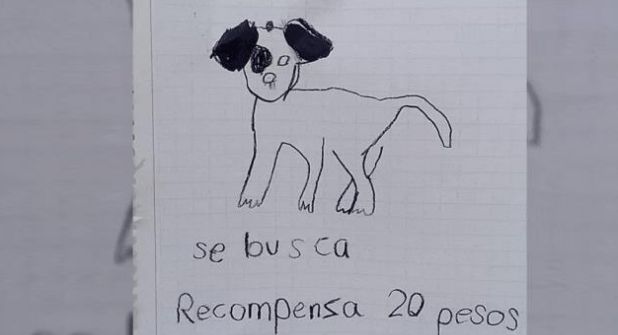 se busca
Recompensa 20 pesos